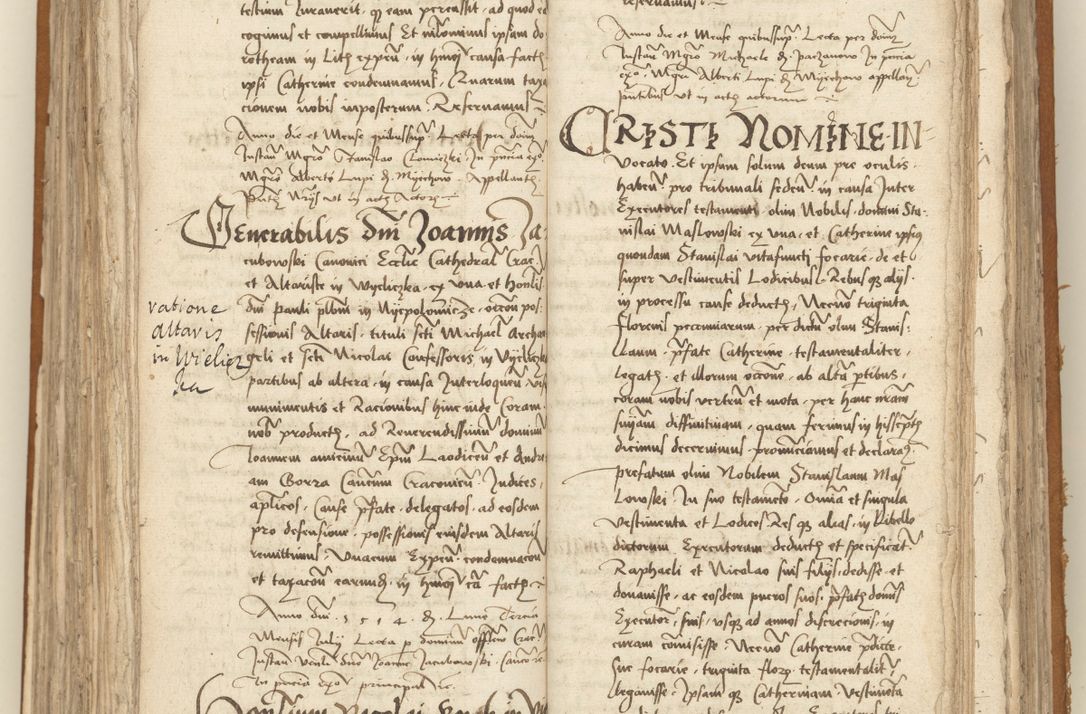 testium Juraverit, q eam percussit, ad quod eo
cogimus et compellimus Et nihilominus ipsum do
rotheam in Lith exprū, in hmōi causa facth
ipsi Catherine condemnamus, Quarum taxa
cionem nobis inposterum Reservamus
Anno die et Mense quibussup Lecta per dom
Instan Mgro Stanislao Lomiczki In pncia exo
Mgro Alberti Lupi d Myechow Appellanth
ptibus ut in acth
Venerabilis Dni Joannis Ja
cubowski Canonici Ecclie Cathedral Crac
et Altariste in Wyeliczka ex una et Honlis
dni Pauli plbni in Nyepolomicze, occoū pos
sessionis Altaris tituli scti Michael Archan
geli et scti Nicolai Confessoris in Vyeliczka
partibus ab altera, in causa Interloquen
munimentis et Racionibus hincinde Coram
nob producth, ad Reverendissimum dominum
Joannem Epm Laodiceū et Andre
am Gorra Canicum Cracovien Judices
aplicos, Cause pfate delegatos, ad eosdem
pro defensione, possessionis eiusdem Altaris
remittimus, Unacum Expen condemnacon
et taxacon earund in hmoi ca facth
Anno dni 1514 d Lune Tercia
Mensis Julij Lecta p dominum offlem Crac
Instan venli dno Joanne Jacubowski Canco
In pncia exo principal
vatione
altaris
in Wielicz
ka
reservamus
Anno die et Mense quibussup Lecta per dom
Instan Mgro Michaele d Paczanow In pncia
exo Mgri Alberti Lupi d Myechow appellan
ptibus ut in acth actorum
CRISTI NOMINE IN
vocato Et ipsum solum deum pre oculis
haben pro tribunali seden in causa Inter
Executores testamenti olim Nobilis domini Sta
nislai Maslowski ex una et Catherine ipsius
quondam Stanislai vitafuncti focarie de et
super vestimentis Lodicibus Rebus q alijs
in processu cause deducth, Necnon triginta
florenis pecuniarum per dictum olim Stanis
llaum pfate Catherine testamentaliter
legath et illorum occone ab alta ptibus
coram nobis vertenti et mota per hanc nram
snīam diffinitivam quam ferimus in hiisscpth
dicimus decernimus pronunciamus et declaram
prefatum olim Nobilem Stanislaum Mas
lowski In suo testamento Omnia et singula
vestimenta et Lodices Res q alias in libello
dictorum Executorum deducth et specificat
Raphaeli et Nicolao suis filijs dedisse et
donavisse ac eosdem pueros suos pfath domis
Executor suis usq ad annos discrecionis in
curam comisisse Necnon Catherine pdicte
sue focarie triginta flor testamentalit
legavisse Ipsam q Catherinam vestimenta